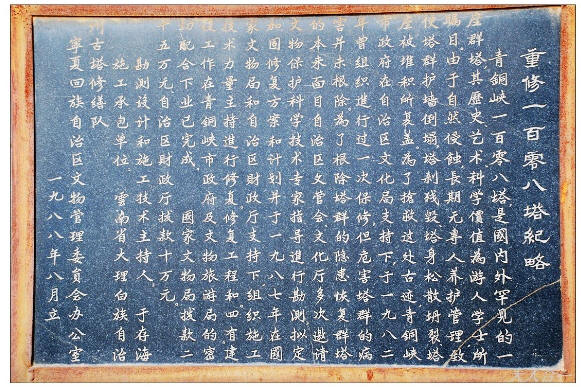 重修一百零八塔紀略
青銅峡一百零八塔是國内外罕见的一
座群塔其歷史艺术科学價值為游人学士所
瞩目由于自然侵蝕長期无專人养护管理致
使塔群护墙倒塌塔刹残毁塔身松散坍裂塔
座被堆积所复盖為了搶救这处古迹青銅峡
市政府在自治区文化局支持下于一九八二
年曾组织進行过一次保修但危害塔群的病
害并未根除為了根除塔群的隐患恢复群塔
的本来面目自治区文管会文化厅多次邀请
文物保护科学技术专家指导進行勘测拟定
加固修复方案和计划并于一九八七年在國
家文物局和自治区財政厅支持下组织施工
技术力量主持進行修复修复工程和四有建
设工作在青銅峡市政府及文物旅游局的密
切配合下业已完成 國家文物局拨款二
十五万元自治区財政厅拨款十万元
勘测设计和施工技术主持人 于存海
施工承包单位 雲南省大理白族自治
州古塔修缮队
寧夏回族自治区文物管理委員会办公室
一九八八年八月立